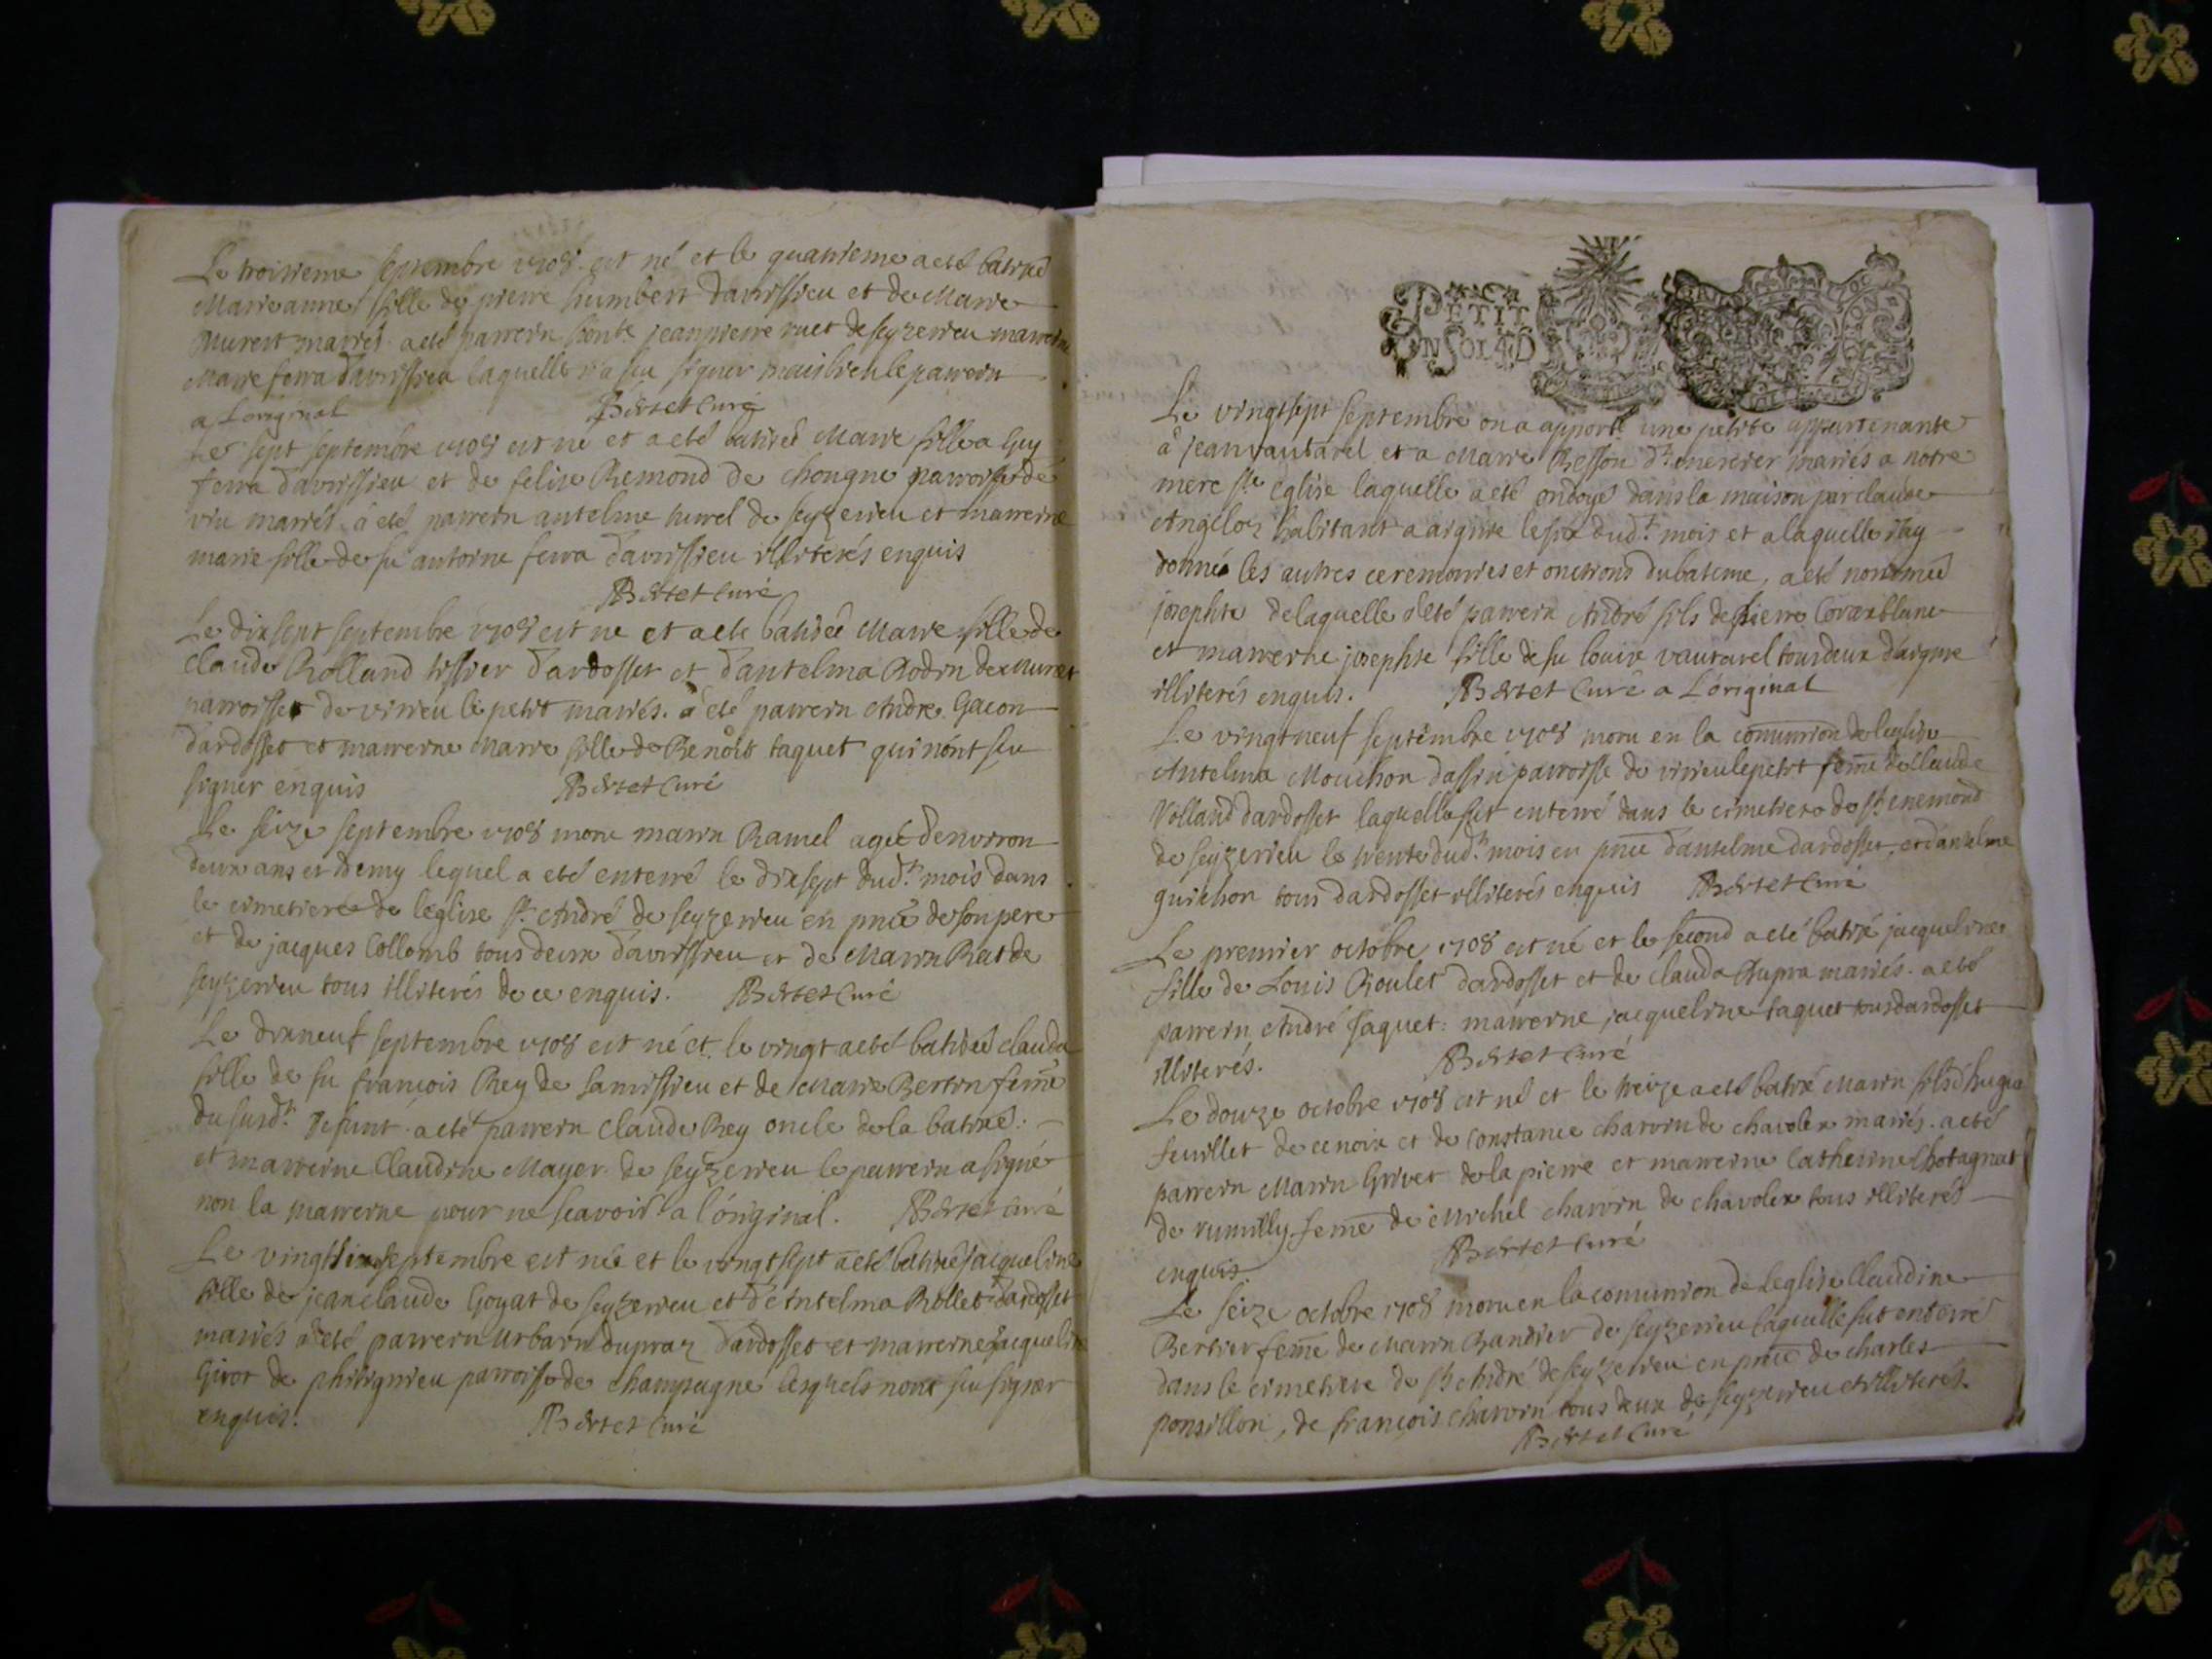 Le troisieme septembre 1708 est né et le quatrieme a eté batisé
Marieanne fille de pierre humbert davrissieu et de Marie
Muret mariés. a eté parrein jeanpierre ruet de seyzerieu marreine
Marie ferra davrissieu laquelle n'a seu signer mais bien le parrein
a Loriginal Bertet Curé
Le sept septembre 1708 est né et a eté batisée Marie fille a Guy
ferra davrissieu et de felise Remond de chongne parroisse de
mariés. a eté parrein antelme hurel de seyzerieu et marreine
marie fille de fu antoine ferra davrissieu illiterés enquis
Bertet Curé
Le dixsept septembre 1708 est ne et a eté batisée Marie fille de
Claude Rolland tissier dardosset et dantelma Rodin de Muret
parroisse de virieu le petit mariés. a eté parrein Andre Gacon
dardosset et marreine Marie fille de Benoit taquet qui n'ont seu
signer enquis Bertet Curé
Le seize septembre 1708 moru marin Ramel agée denviron
deux ans et demy lequel a eté enterré le dixsept dud.t mois dans
le cimetiere de l'eglise s.t André de seyzerieu en pnce de son pere
et de jacques Collomb tous deux davrissieu et de Marin Rat de
seyzerieu tous illiterés de ce enquis. Bertet Curé
Le dixneuf septembre 1708 est né et le vingt a eté batisée clauda
fille de fu francois Rey de samissieu et de Marie Bertin feme
du susd.t defunt. a eté parrein Claude Rey oncle de la batisée.
et marreine Claudine Mayer de seyzerieu le parrein a signé
non la marreine pour ne scavoir a l'original. Bertet Curé
Le vingtsix septembre est née et le vingtsept a eté batisée jacqueline
fille de jeanclaude Goyat de seyzerieu et d'Antelma Rollet dardosset
mariés a eté parrein urbain dupraz dardosset et marreine jacqueline
Girot de philignieu parroisse de champagne lesquels n'ont seu signer
enquis. Bertet Curé
PETIT
EN 4 SOL D
Le vingtsept septembre on a apporté une petite appartenante
à jean vautarel et a Marie Besson d.t mercier mariés a notre
mere s.te eglise laquelle a eté ondoyé dans la maison par claude
Angeloz habitant a argine le six dud.t mois et a laquelle j'ay
donné les autres ceremonies et onctions du bateme, a eté nommée
josephte de laquelle a eté parrein André fils de pierre Corax blanc
et marreine josephte fille de fu louis vautarel tous deux dargine
illiterés enquis. Bertet Curé a L'original
Le vingtneuf septembre 1708 moru en la comunion de leglise
Antelma Mouchon dassin parroisse de virieu le petit feme de Claude
Volland dardosset laquelle fut enterré dans le cimetiere de s.t enemond
de seyzerieu le trente dud.t mois en pnce dantelme dardosset, et dantelme
guichon tous dardosset illiterés enquis Bertet Curé
Le premier octobre 1708 est né et le second a eté batisé jacqueline
fille de Louis Roulet dardosset et de clauda Dupra mariés. a eté
parrein André taquet: marreine jacqueline taquet tous dardosset
illiterés. Bertet Curé
Le douze octobre 1708 est né et le treize a eté batisé Marin fils d'hugue
feuillet de cenoix et de constance charvin de chavolex mariés. a eté
parrein Marin Grivet de la pierre et marreine Catherine Chotagnat
de rumilly feme de Michel charvin de chavolex tous illiterés
enquis. Bertet Curé
Le seize octobre 1708 moru en la comunion de Leglise Claudine
Bertier feme de Marin Randier de seyzerieu laquelle fut enterré
dans le cimetiere de s.t André de seyzerieu en pnce de charles
ponsillon, de francois charvin tous deux de seyzerieu et illiterés.
Bertet Curé